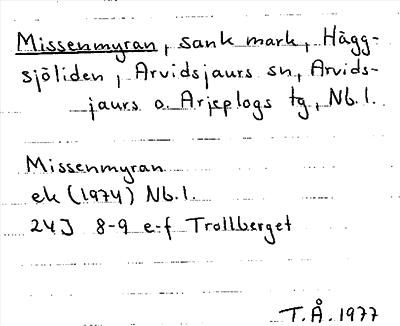 Missenmyran, sank mark, Hägg-
sjöliden, Arvidsjaurs sn, Arvids-
jaurs o. Arjeplogs tg, Nb. l.
Missenmyran
ek (1974) Nb. l.
24J 8-9 e-f Trollberget
T. Å. 1977